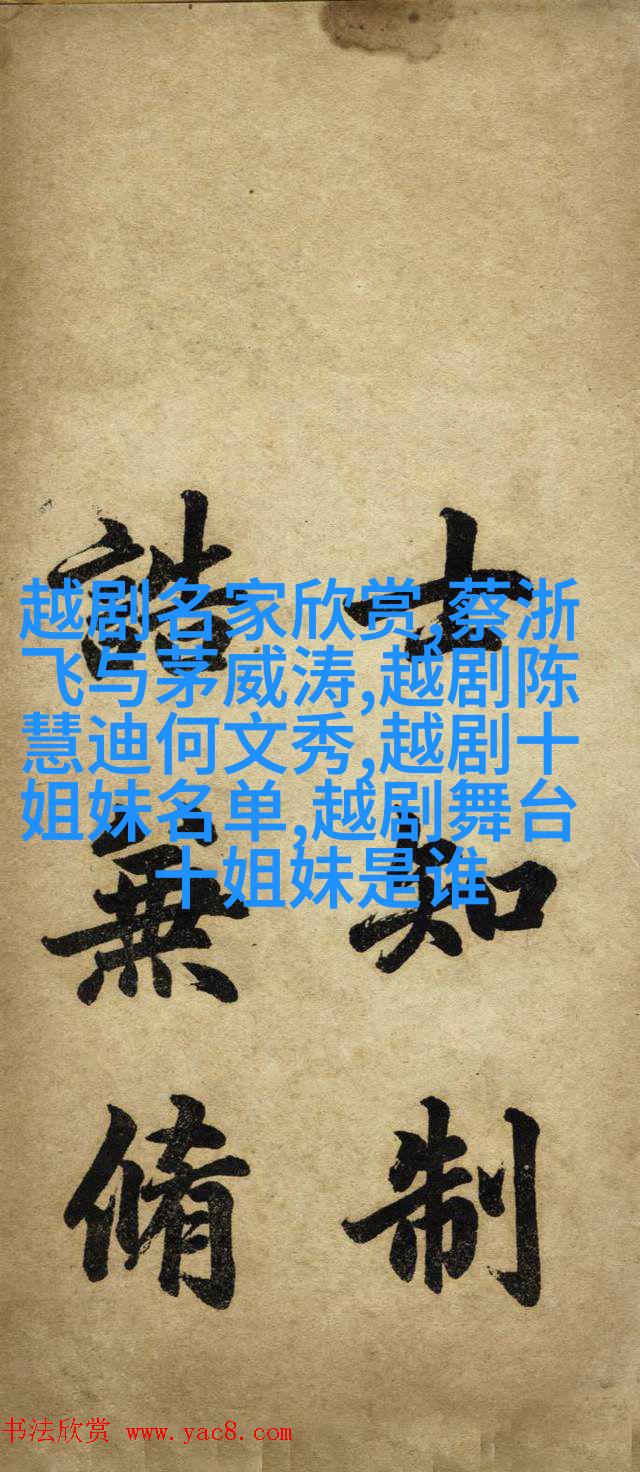 越剧名家欣赏,蔡浙
飞与茅威涛,越剧陈
慧迪何文秀,越剧十
姐妹名单,越剧舞台
十姐妹是谁
士知制
誥兼脩
书法欣赏 www.yac8.com